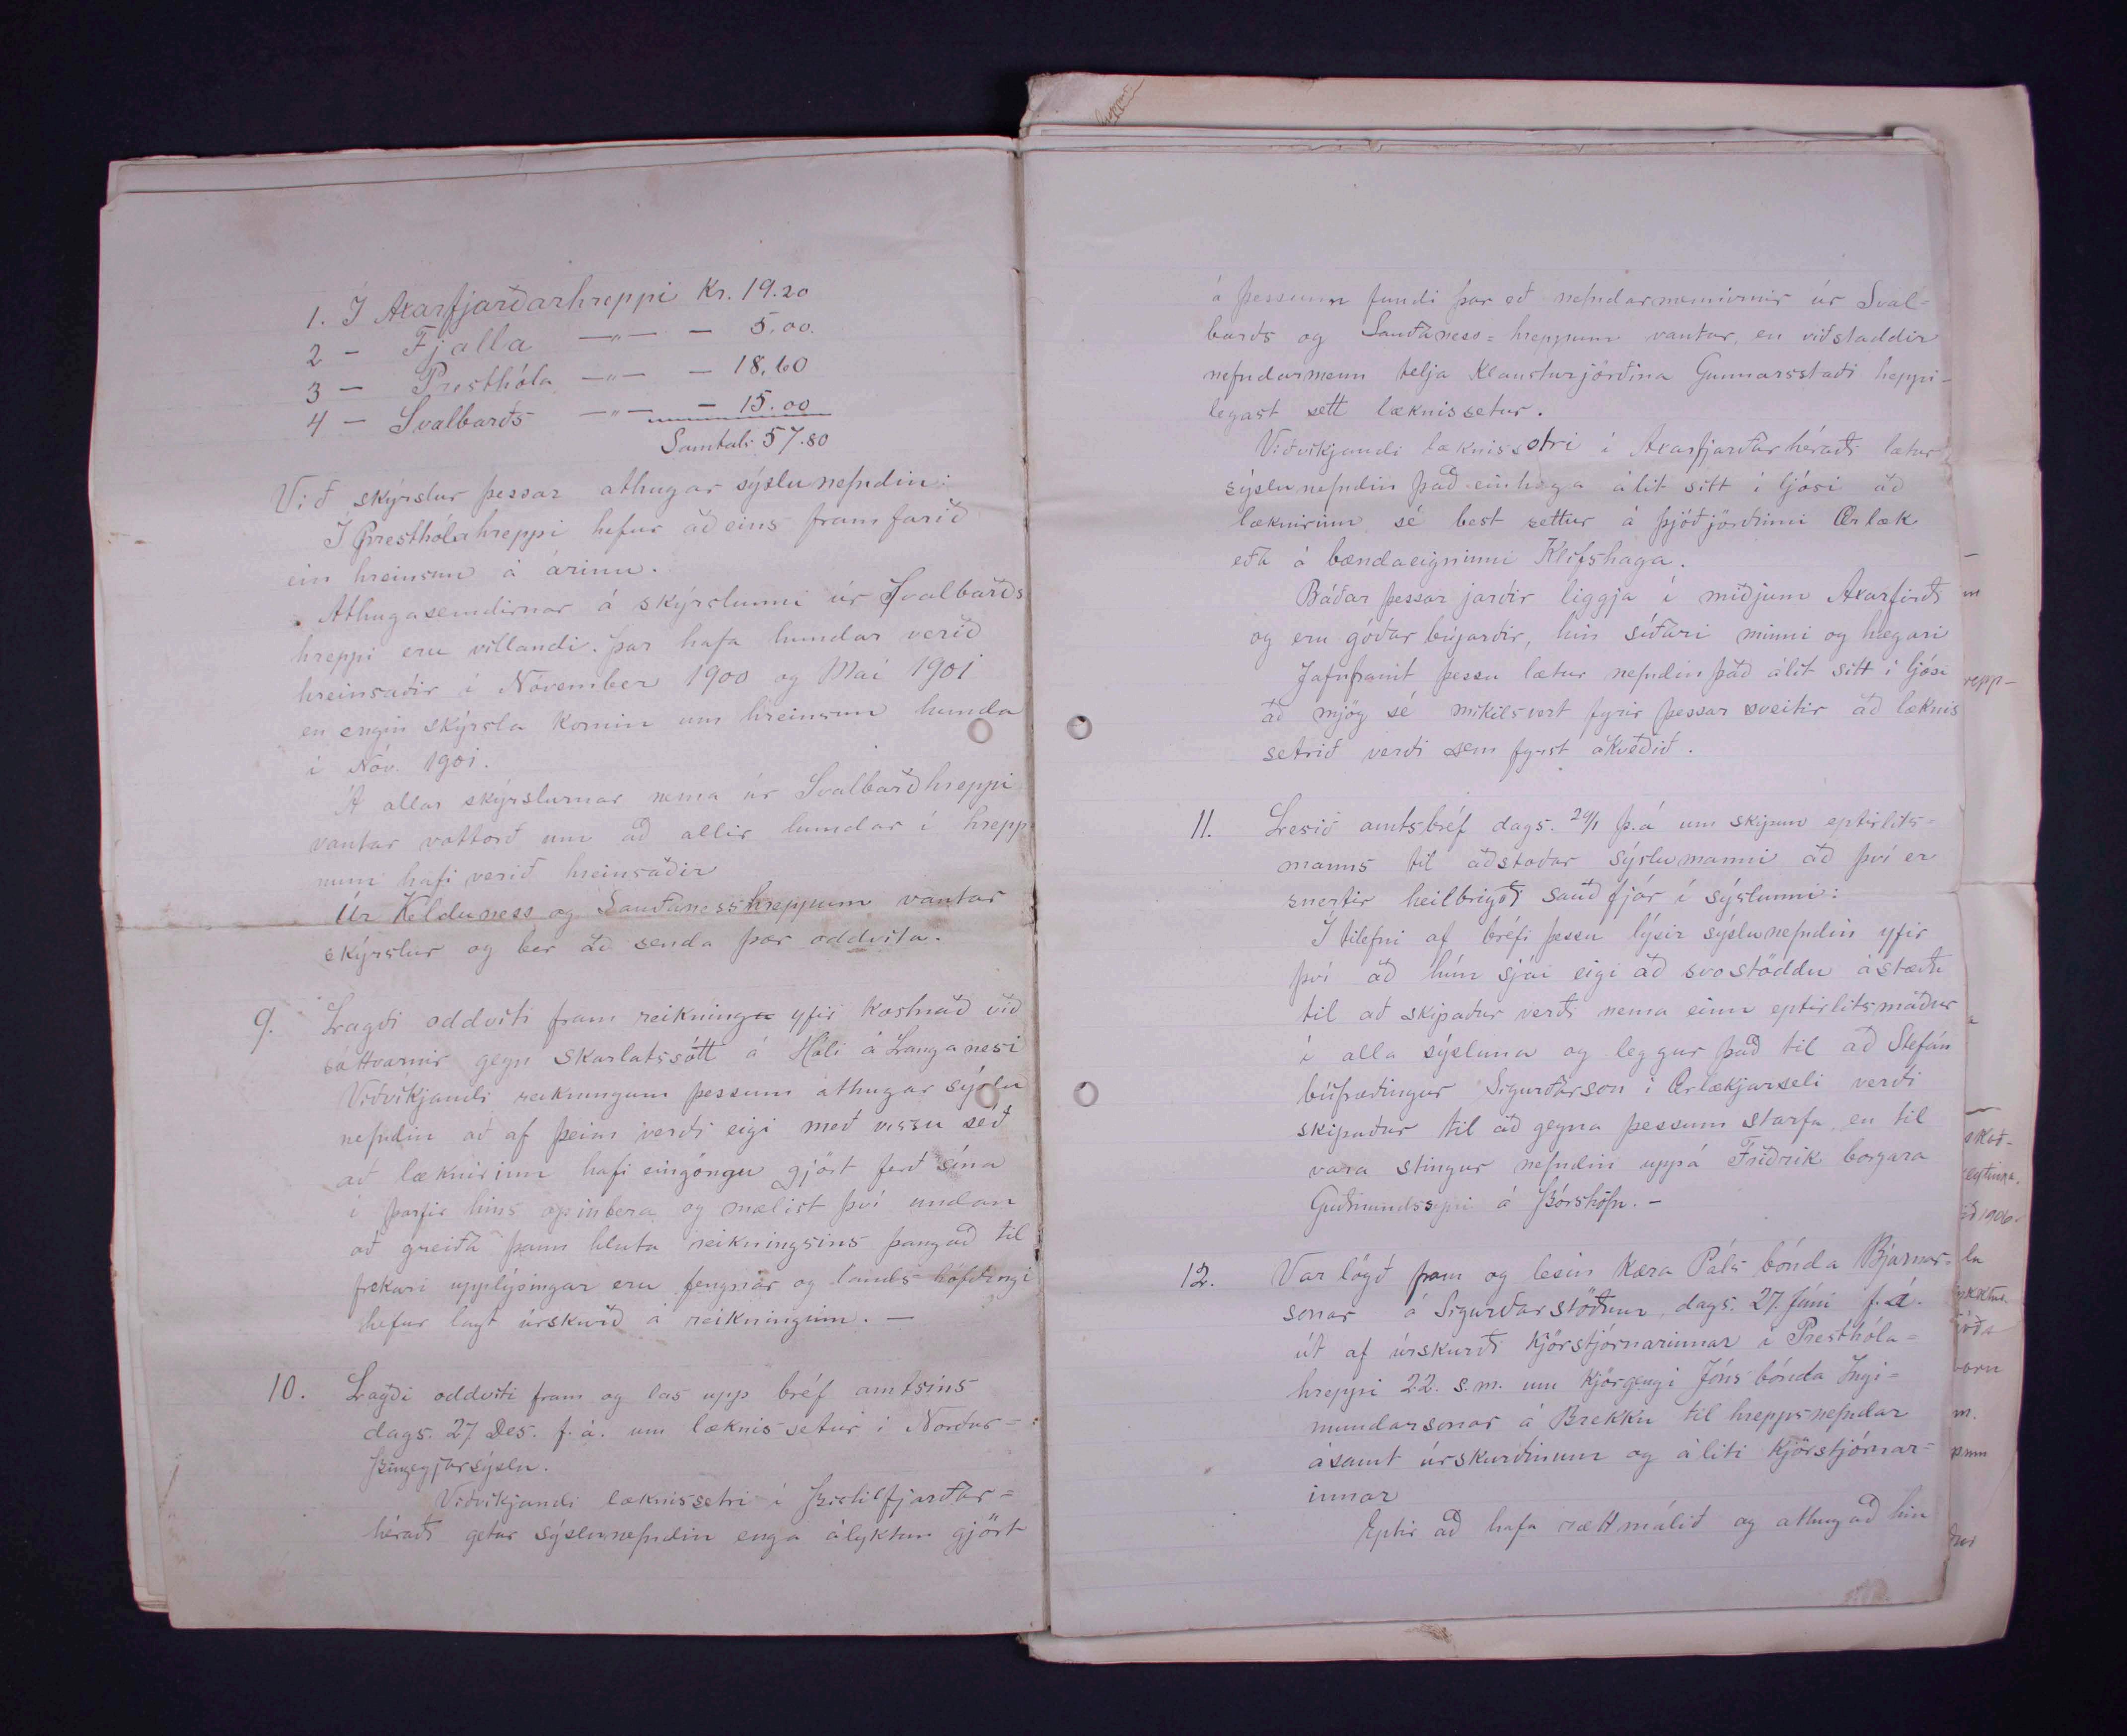 1. Í Axarfjarðarhreppi Kr. 19.20
2 - Fjalla —„— - 5.00.
3 - Presthóla —„— - 18.60
4 - Svalbarðs —„— - 15.00
Samtals 57.80
Við skýrslur þessar athugar sýslunefndin:
Í Presthólahreppi hefur að eins framfarið
ein hreinsun á árinu.
Athugasemdirnar á skýrslunni úr Svalbarðs
hreppi eru villandi. Þar hafa hundar verið
hreinsaðir í Nóvember 1900 og Maí 1901
en engin skýrsla komin um hreinsun hunda
í Nóv. 1901.
Á allar skýrslurnar nema úr Svalbarðhreppi
vantar vottorð um að allir hundar í hrepp
num hafi verið hreinsaðir
Úr Kelduness og Sauðanesshreppum vantar
skýrslur og ber að senda þær oddvita.
9. Lagði oddviti fram reikninga yfir kostnað við
sóttvarnir gegn skarlatssótt á Hóli á Langanesi
Viðvíkjandi reikningum þessum athugar sýslu
nefndin að af þeim verði eigi með vissu séð
að læknirinn hafi eingöngu gjört ferð sína
í þarfir hins opinbera og mælist því undan
að greiða þann hluta reikningsins þangað til
frekari upplýsingar eru fengnar og landshöfðingi
hefur lagt úrskurð á reikninginn. —
10. Lagði oddviti fram og las upp bréf amtsins
dags. 27 Des. f. á. um læknissetur í Norður=
Þingeyjarsýslu.
Viðvíkjandi læknissetri í Þistilfjarðar=
héraði getur sýslunefndin enga ályktun gjört
á þessum fundi þar eð nefndarmennirnir úr Sval=
barðs og Sauðaness=hreppum vantar, en viðstaddir
nefndarmenn telja Klausturjörðina Gunnarsstaði heppi-
legast sett læknissetur.
Viðvíkjandi læknissetri í Axarfjarðarhéraði lætur
sýslunefndin það einhuga álit sitt í ljósi að
læknirinn sé best settur á þjóðjörðinni Ærlæk
eða á bændaeigninni Klifshaga.
Báðar þessar jarðir liggja í miðjum Axarfirði
og eru góðar bújarðir, hin síðari minni og hægari
Jafnframt þessu lætur nefndin það álit sitt í ljósi
að mjög sé mikilsvert fyrir þessar sveitir að læknis
setrið verði sem fyrst ákveðið.
11. Lesið amtsbréf dags. 24/1 þ.á um skipun eptirlits=
manns til aðstoðar sýslumanni að því er
snertir heilbrigði sauðfjár í sýslunni:
Í tilefni af bréfi þessu lýsir sýslunefndin yfir
því að hún sjái eigi að svostöddu ástæðu
til að skipaður verði nema einn eptirlitsmaður
í alla sýsluna og leggur það til að Stefán
búfræðingur Sigurðarson í Ærlækjarseli verði
skipaður til að gegna þessum starfa en til
vara stingur nefndin uppá Friðrik borgara
Guðmundssyni á Þórshöfn. —
12. Var lögð fram og lesin kæra Páls bónda Bjarnar=
sonar á Sigurðarstöðum, dags. 27. Júní f. á.
út af úrskurði Kjörstjórnarinnar í Presthóla=
hreppi 22. s.m. um kjörgengi Jóns bónda Ingi=
mundarsonar á Brekku til hreppsnefndar
ásamt úrskurðinum og áliti Kjörstjórnar=
innar
Eptir að hafa rætt málið og athugað hin